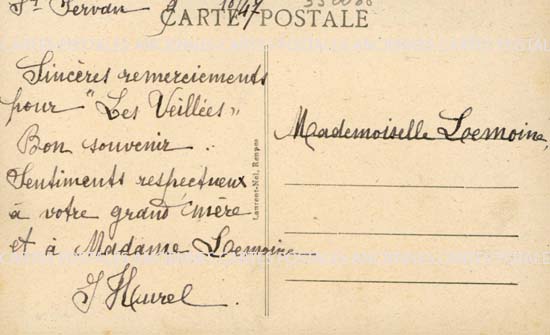 St Servan
CARTE POSTALE
Sincères remerciements
pour "Les Veillées"
Bon souvenir.
Sentiments respectueux
à votre grand'mère
et à Madame Lemoine
J Hurel.
Laurent-Nel, Rennes
Mademoiselle Lemoine,